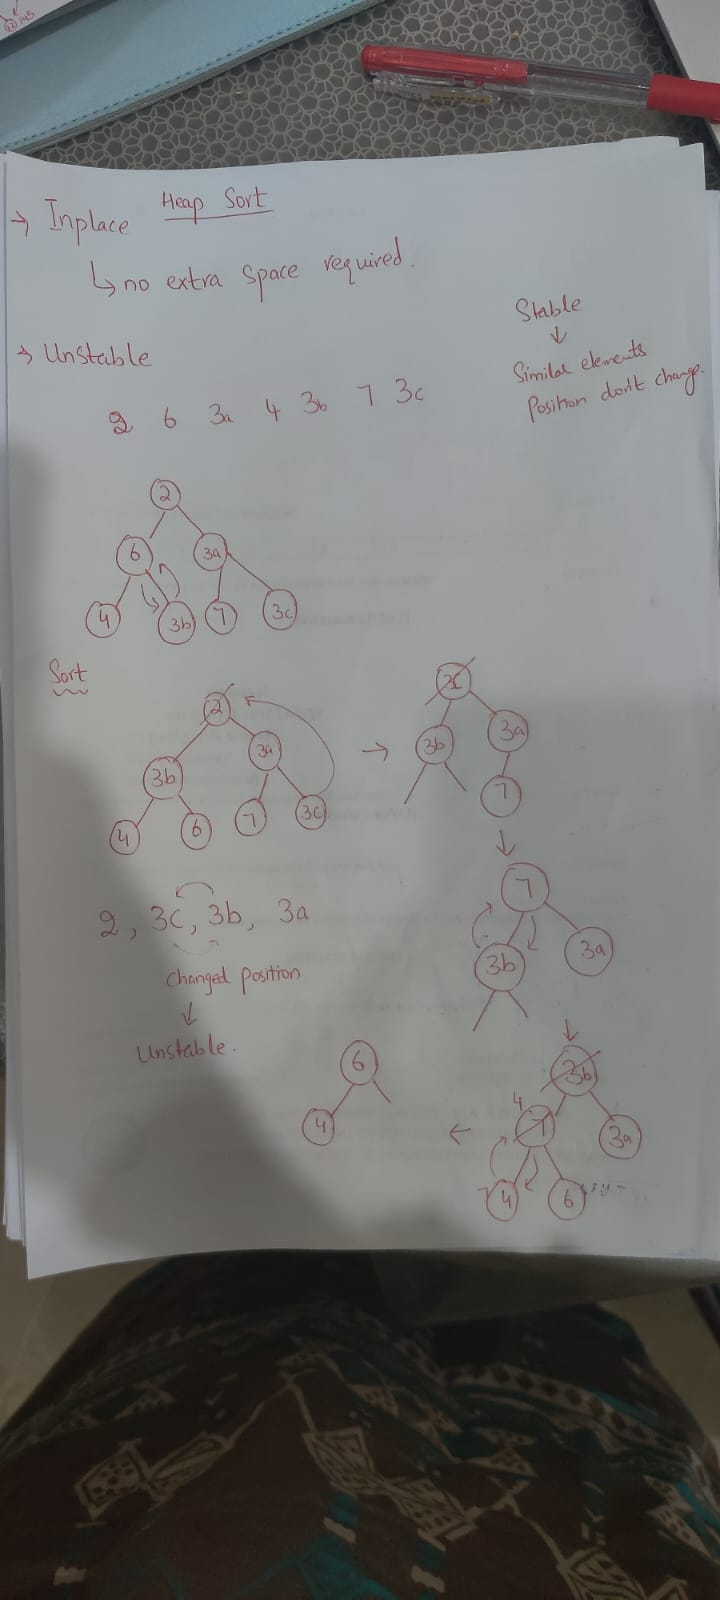 Heap Sort
→ Inplace
↳ no extra space required.
→ Unstable
Stable
↓
Similar elements
Position don't change.
2 6 3a 4 3b 7 3c
2
6 3a
4 3b 7 3c
Sort
2
3b 3a
4 6 7 3c
→
3c
3b 3a
7
↓
7
3b 3a
2, 3c, 3b, 3a
Changed position
↓
Unstable.
↓
3b
4 7 3a
4 6
←
6
4